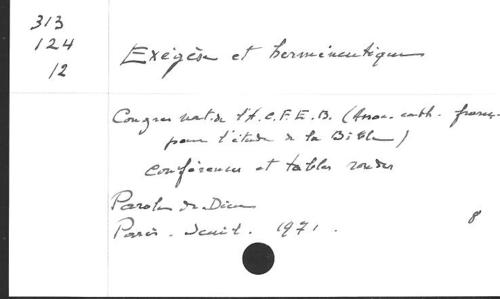 313
124
12
Exégèse et herméneutique
Congrès nat. de l'A.C.F.E.B. (Assoc. cath. franç.
pour l'étude de la Bible)
conférences et tables rondes
Parole de Dieu
Paris. Seuil. 1971.
8